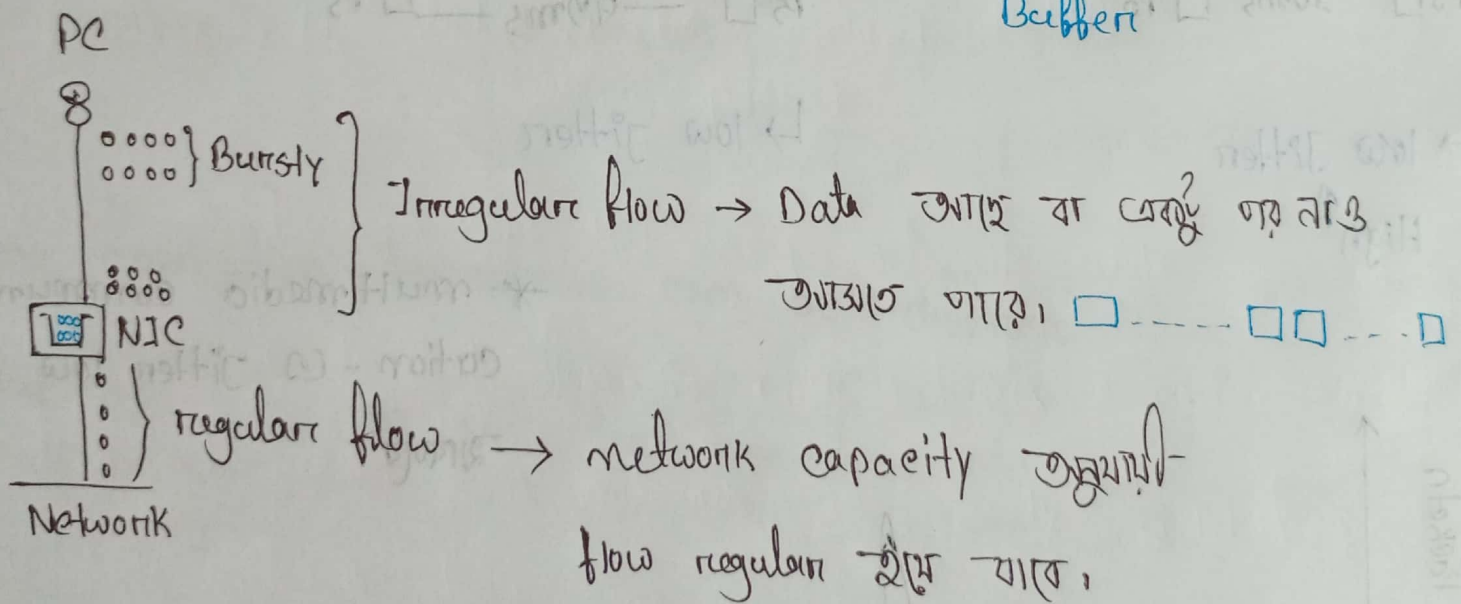 Buffer
PC
Bursty
Irregular flow → Data আছে বা একটু পর নাও
আসতে পারে।
NIC
regular flow → network capacity অনুযায়ী
flow regular হয়ে যাবে।
Network